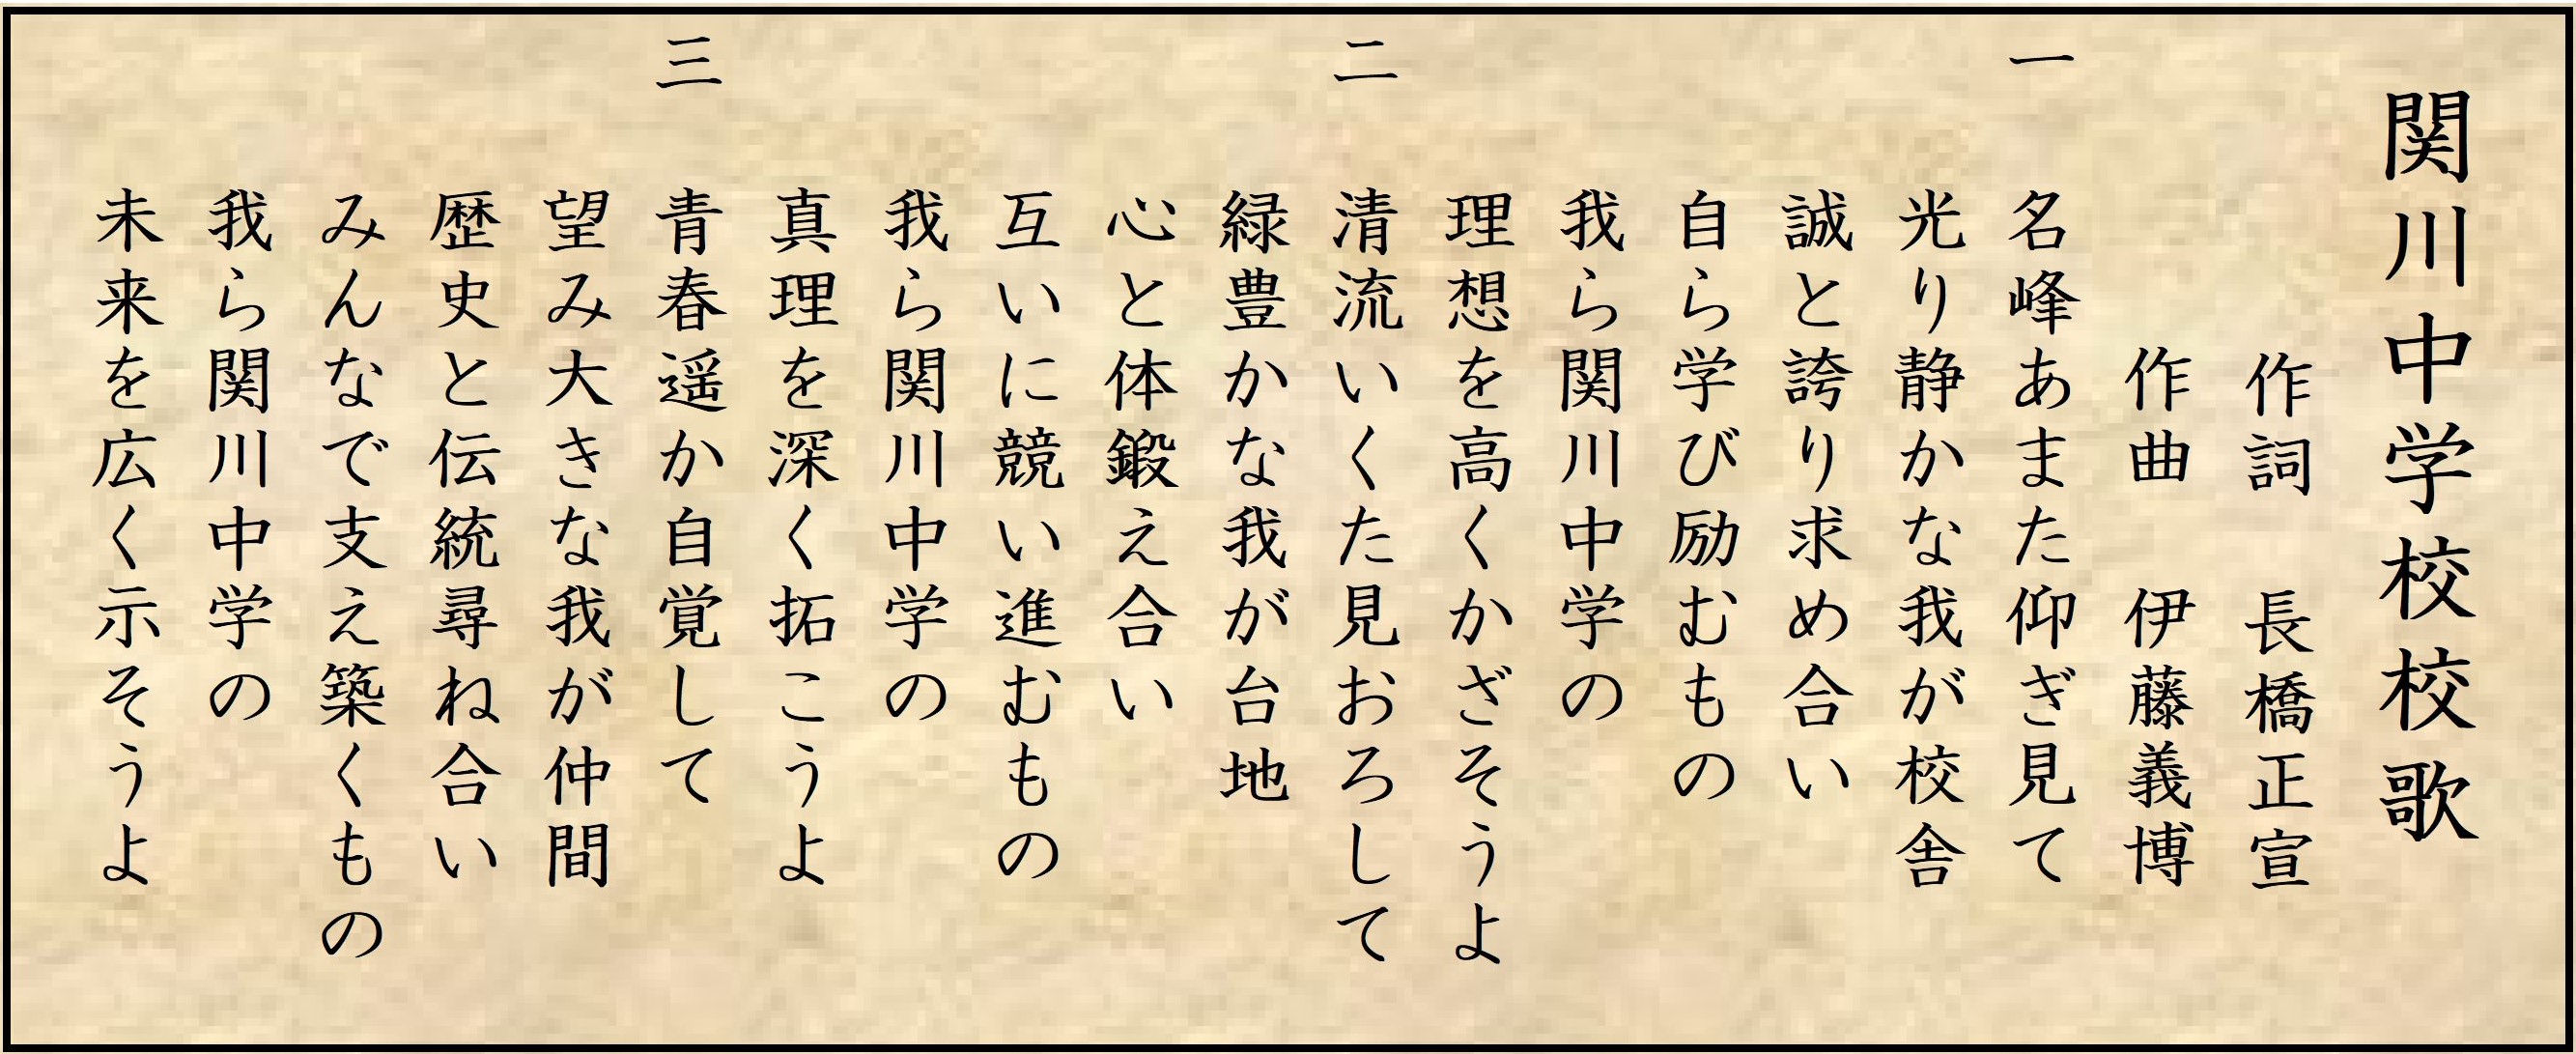 関川中学校校歌
作詞　長橋正宣
作曲　伊藤義博
一
名峰あまた仰ぎ見て
光り静かな我が校舎
誠と誇り求め合い
自ら学び励むもの
我ら関川中学の
理想を高くかざそうよ
二
清流いくた見おろして
緑豊かな我が台地
心と体鍛え合い
互いに競い進むもの
我ら関川中学の
真理を深く拓こうよ
三
青春遥か自覚して
望み大きな我が仲間
歴史と伝統尋ね合い
みんなで支え築くもの
我ら関川中学の
未来を広く示そうよ